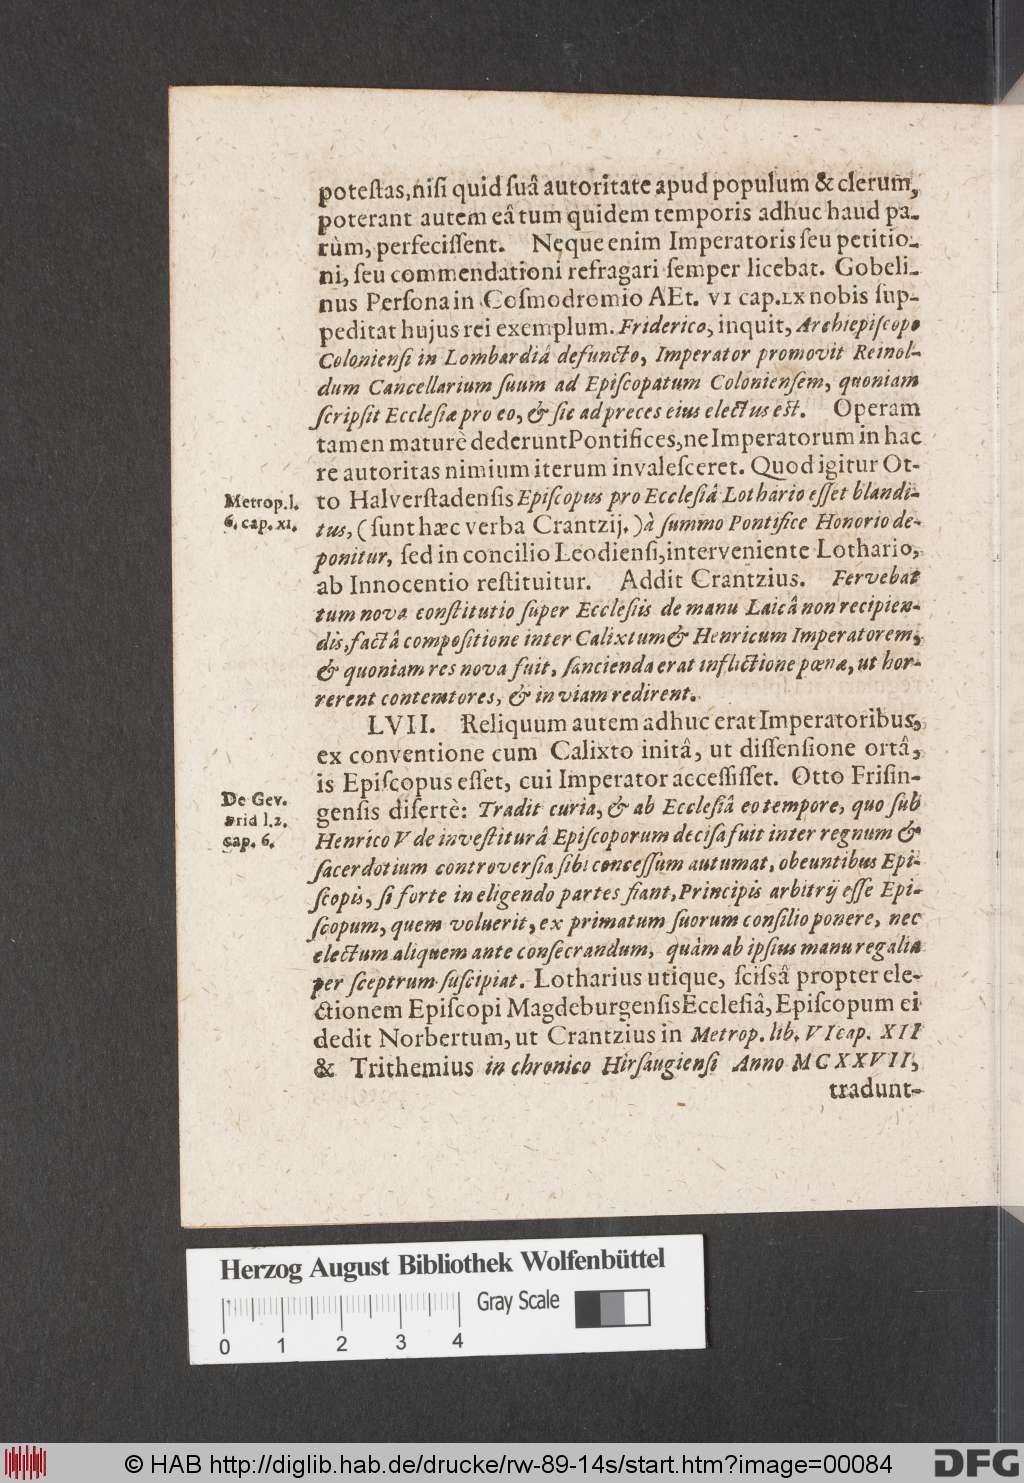 poteſtas, niſi quid ſuâ autoritate apud populum & clerum,
poterant autem eâ tum quidem temporis adhuc haud pa-
rùm, perfeciſſent. Neque enim Imperatoris ſeu petitio-
ni, ſeu commendationi refragari ſemper licebat. Gobeli-
nus Perſona in Coſmodromio AEt. VI cap. LX nobis ſup-
peditat hujus rei exemplum. Friderico, inquit, Archiepiſcopo
Colonienſi in Lombardiâ defuncto, Imperator promovit Reinol-
dum Cancellarium ſuum ad Epiſcopatum Colonienſem, quoniam
ſcripſit Eccleſiæ pro eo, & ſic ad preces eius electus est. Operam
tamen maturè dederunt Pontifices, ne Imperatorum in hac
re autoritas nimium iterum invaleſceret. Quod igitur Ot-
Metrop. l.
6. cap. XI.
to Halverſtadenſis Epiſcopus pro Eccleſiâ Lothario eſſet blandi-
tus, (ſunt hæc verba Crantzij.) à ſummo Pontifice Honorio de-
ponitur, ſed in concilio Leodienſi, interveniente Lothario,
ab Innocentio reſtituitur. Addit Crantzius. Fervebat
tum nova conſtitutio ſuper Eccleſiis de manu Laicâ non recipien-
dis, factâ compoſitione inter Calixtum & Henricum Imperatorem,
& quoniam res nova fuit, ſancienda erat inflictione pœnæ, ut hor-
rerent contemtores, & in viam redirent.
LVII. Reliquum autem adhuc erat Imperatoribus,
ex conventione cum Calixto initâ, ut diſſenſione ortâ,
is Epiſcopus eſſet, cui Imperator acceſſiſſet. Otto Friſin-
De Gev.
arid l. 2.
cap. 6.
genſis diſertè: Tradit curia, & ab Eccleſiâ eo tempore, quo ſub
Henrico V de inveſtiturâ Epiſcoporum deciſa fuit inter regnum &
ſacerdotium controverſia ſibi conceſſum autumat, obeuntibus Epi-
ſcopis, ſi forte in eligendo partes fiant, Principis arbitrij eſſe Epi-
ſcopum, quem voluerit, ex primatum ſuorum conſilio ponere, nec
electum aliquem ante conſecrandum, quàm ab ipſius manu regalia
per ſceptrum ſuſcipiat. Lotharius utique, ſciſsâ propter ele-
ctionem Epiſcopi Magdeburgenſis Eccleſiâ, Epiſcopum ei
dedit Norbertum, ut Crantzius in Metrop. lib. VI cap. XII
& Trithemius in chronico Hirſaugienſi Anno MCXXVII,
tradunt-
Herzog August Bibliothek Wolfenbüttel
Gray Scale
0 1 2 3 4
© HAB http://diglib.hab.de/drucke/rw-89-14s/start.htm?image=00084
DFG